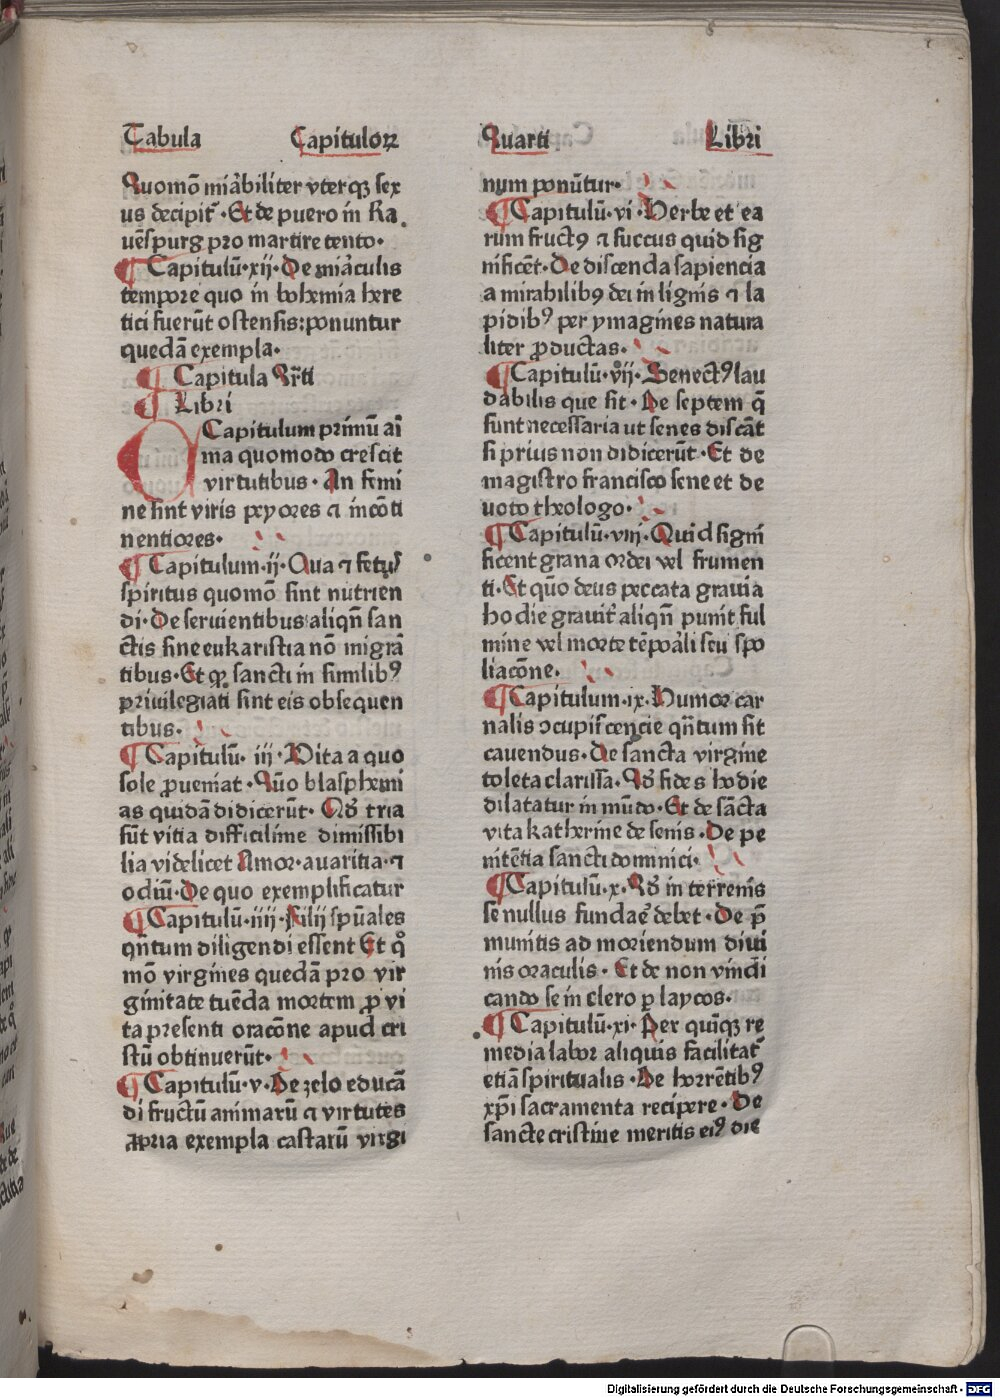 Tabula Capitulorꝝ Quarti Libri
Quomō miābiliter vterqꝫ sex
us decipit᷑ · Et de puero in Ra
uēspurg pro martire tento·
¶ Capitulū·xij·De miāculis
tempore quo in bohemia here
tici fuerūt ostensis:ponuntur
quedā exempla·
¶ Capitula Qr̄ti
¶ Libri
Capitulum primū ai
ma quomodo crescit
virtutibus · An femi
ne sint viris peyores ⁊ incōti
nentiores·
¶ Capitulum·ij·Qua ⁊ fetus
spiritus quomō sint nutrien
di·De seruientibus aliqn̄ san
ctis sine eukaristia nō migrā
tibus·Et qꝫ sancti in similibꝰ
priuilegiati sint eis obsequen
tibus·
¶ Capitulū· iij ·Vita a quo
sole ꝓueniat·Quo blasphemi
as quidā didicerūt· Qd̄ tria
sūt vitia difficilime dimissibi
lia videlicet Amor·auaritia·⁊
odiū·De quo exemplificatur
¶ Capitulū·iiij·Filij spūales
qn̄tum diligendi essent Et qͦ
mō virgines quedā pro vir
ginitate tuēda mortem ꝓ vi
ta presenti oracōne apud cri
stū obtinuerūt·
¶ Capitulū·v·De zelo educā
di fructū animarū ⁊ virtutes
ꝓpria exempla castarū virgi
num ponūtur·
¶ Capitulū·vi·Herbe et ea
rum fructꝰ ⁊ succus quid sig
nificēt·De discenda sapiencia
a mirabilibꝰ dei in lignis ⁊ la
pidibꝰ per ymagines natura
liter ꝓductas·
¶ Capitulū·vij·Senectꝰ lau
dabilis que sit·De septem q̄
sunt necessaria ut senes discāt
si prius non didicerūt· Et de
magistro francisco sene et de
uoto theologo·
¶ Capitulū·viij·Quid signi
ficent grana ordei vel frumen
ti·Et quo deus peccata grauia
hodie grauit᷑ aliqn̄ punit ful
mine vel morte tēpoāli seu spo
liacōne·
¶ Capitulum·ix·Humor car
nalis ↄcupiscencie qn̄tum sit
cauendus·De sancta virgine
toleta clarissa·Qd̄ fides hodie
dilatatur in mūdo·Et de sācta
vita katherine de senis·De pe
nitētia sancti dominici·
¶ Capitulū·x·Qd̄ in terrenis
se nullus fundare debet·De p̄
munitis ad moriendum diui
nis oraculis· Et de non vindi
cando se in clero ꝑ laycos·
¶ Capitulū·xi·Per quīqꝫ re
media labor aliquis facilitat᷑
etiā spiritualis·De horrētibꝰ
xp̄i sacramenta recipere·De
sancte cristine meritis eiꝰ die
Digitalisierung gefördert durch die Deutsche Forschungsgemeinschaft · DFG